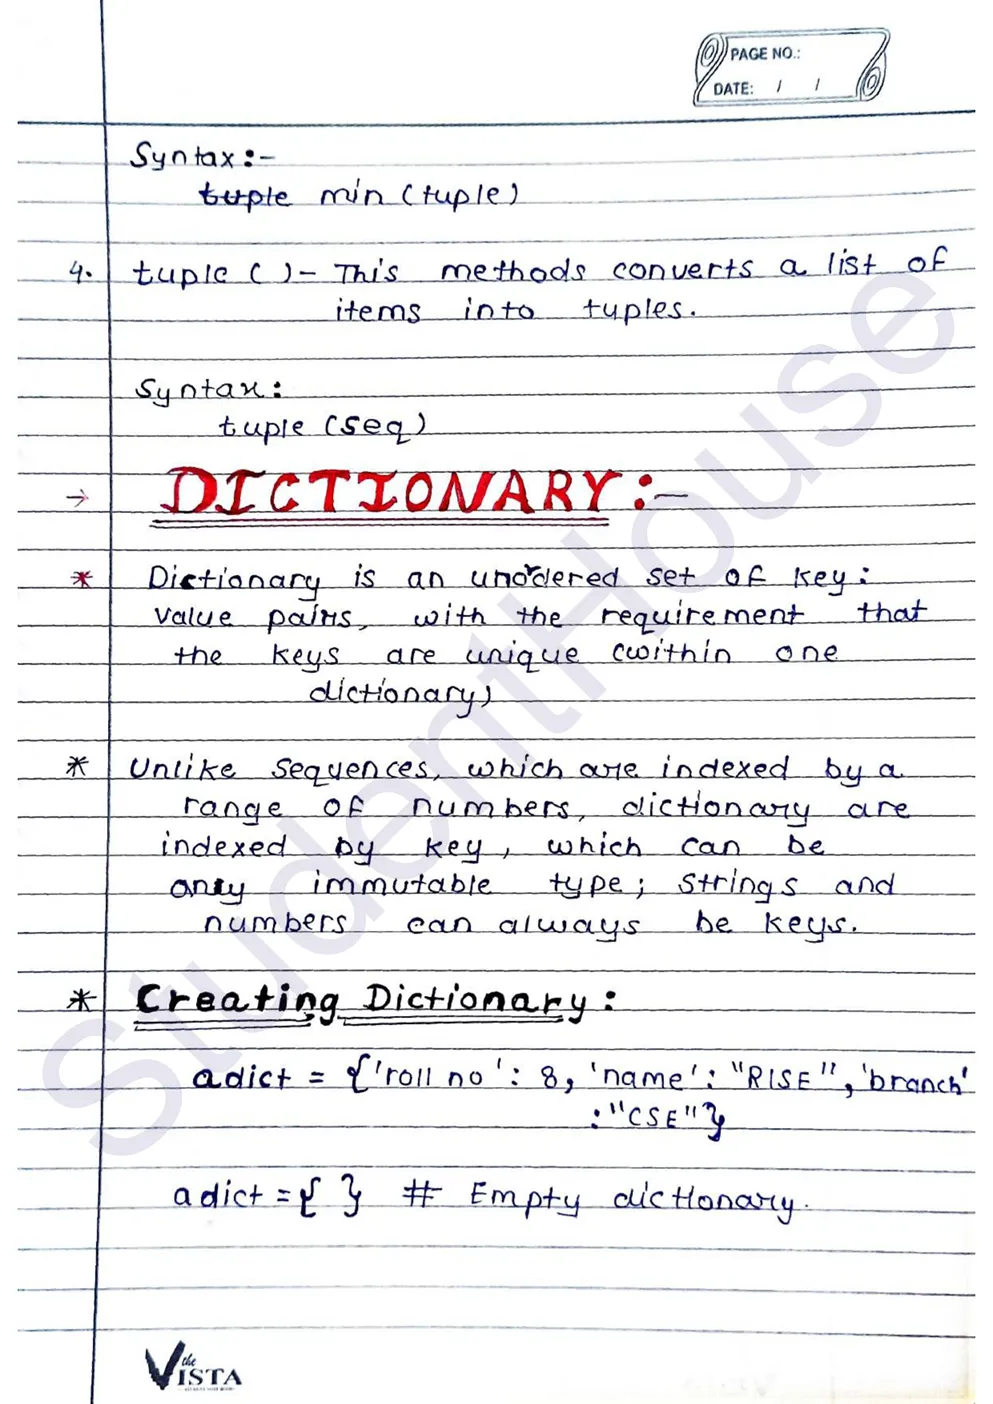 PAGE NO.:
DATE: / /
Syntax :-
tuple min (tuple)
4. tuple ( ) - This methods converts a list of
items into tuples.
Syntax :
tuple (seq)
→ DICTIONARY :-
* Dictionary is an unordered set of key :
value pairs, with the requirement that
the keys are unique (within one
dictionary)
* Unlike sequences, which are indexed by a
range of numbers, dictionary are
indexed by key, which can be
any immutable type; strings and
numbers can always be keys.
* Creating Dictionary :
adict = {'roll no' : 8, 'name' : "RISE", 'branch'
: "CSE"}
adict = { } # Empty dictionary.
the
VISTA
StudentHouse